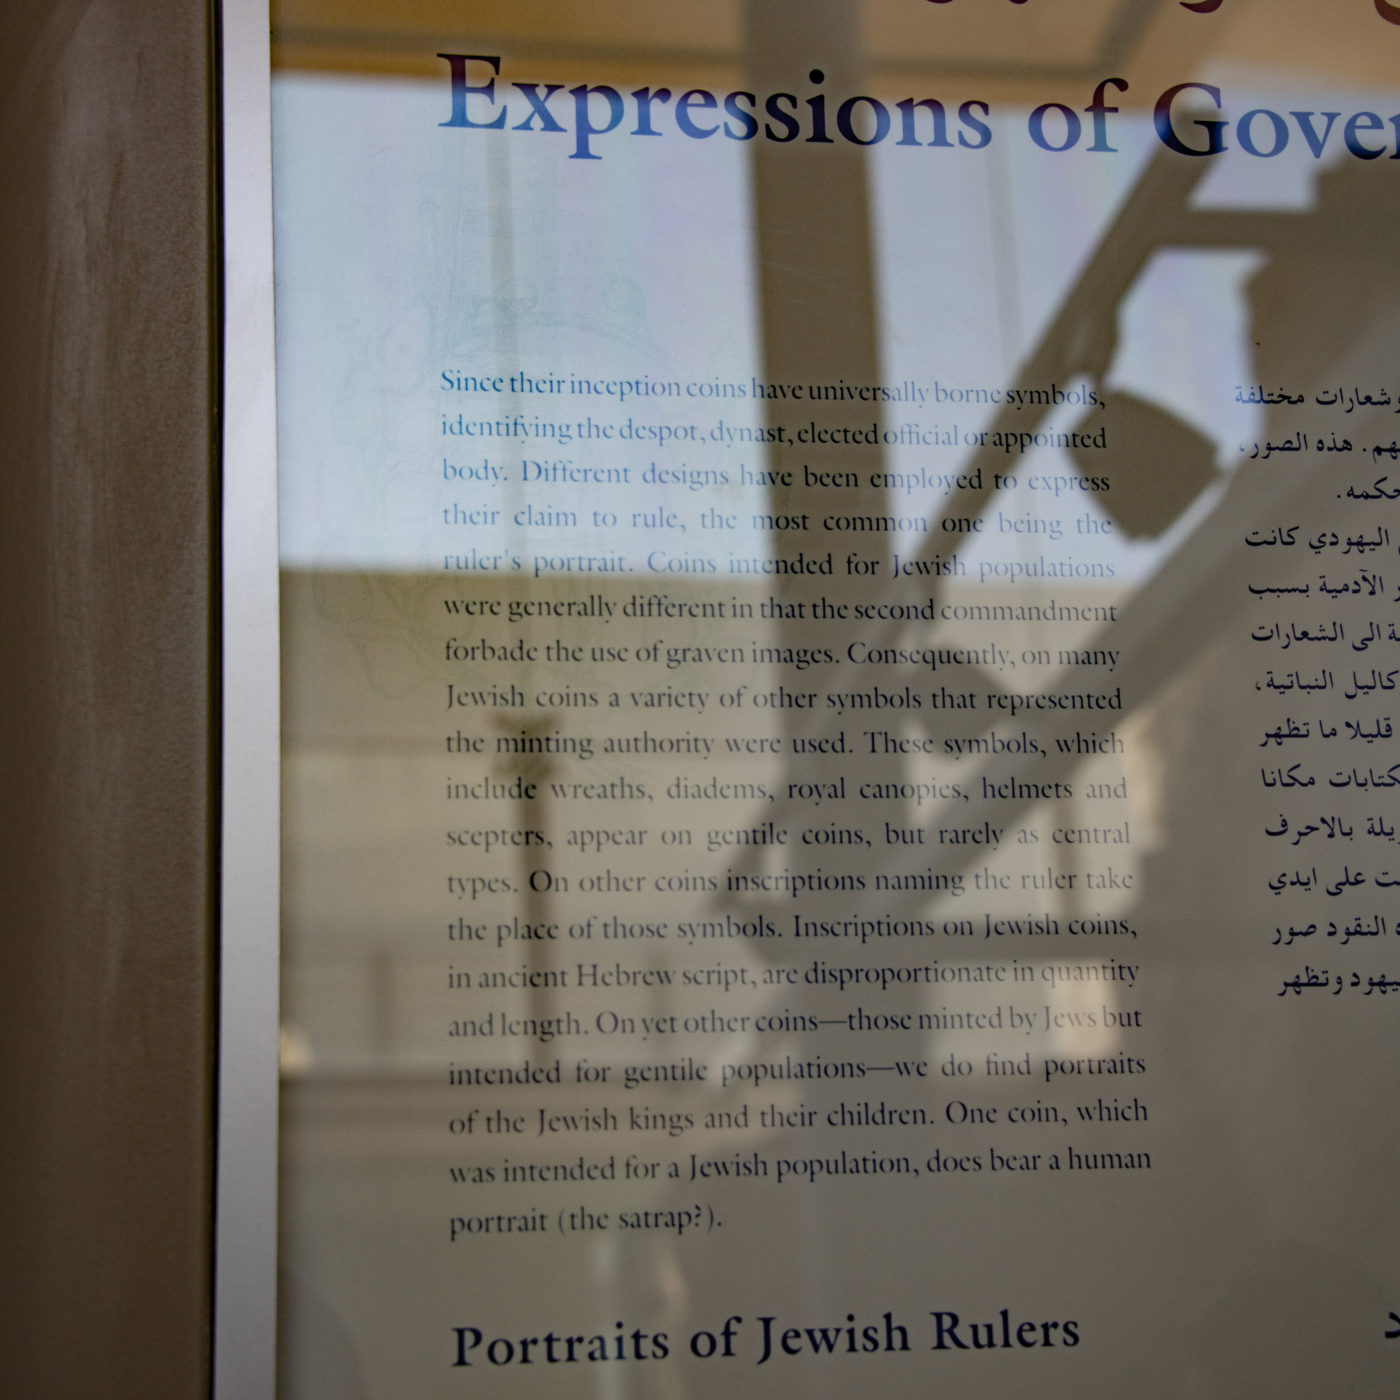 Expressions of
Since their inception coins have universally borne symbols,
identifying the despot, dynast, elected official or appointed
body. Different designs have been employed to express
their claim to rule, the most common one being the
ruler's portrait. Coins intended for Jewish populations
were generally different in that the second commandment
forbade the use of graven images. Consequently, on many
Jewish coins a variety of other symbols that represented
the minting authority were used. These symbols, which
include wreaths, diadems, royal canopies, helmets and
scepters, appear on gentile coins, but rarely as central
types. On other coins inscriptions naming the ruler take
the place of those symbols. Inscriptions on Jewish coins,
in ancient Hebrew script, are disproportionate in quantity
and length. On yet other coins—those minted by Jews but
intended for gentile populations—we do find portraits
of the Jewish kings and their children. One coin, which
was intended for a Jewish population, does bear a human
portrait (the satrap?).
Portraits of Jewish Rulers
وشعارات مختلفة
هذه الصور،
حكمه.
اليهودي كانت
الآدمية بسبب
الى الشعارات
النباتية،
قليلا ما تظهر
مكانا
بالاحرف
على ايدي
النقود صور
وتظهر